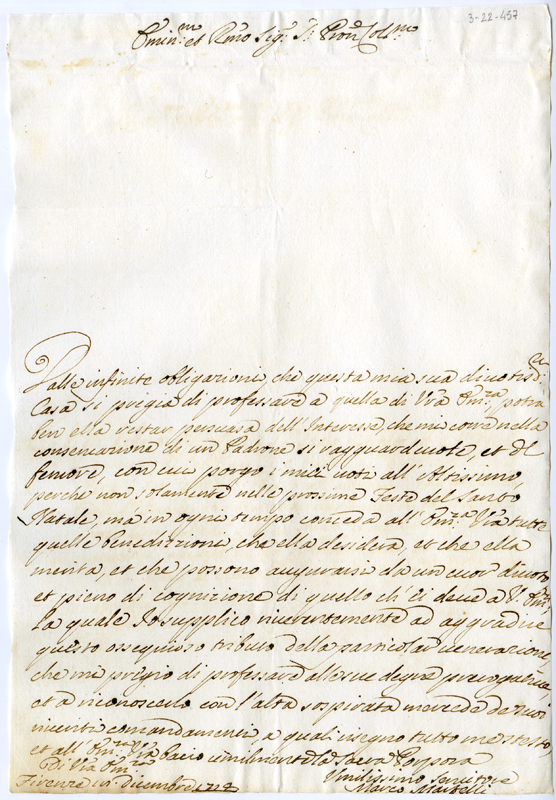 3-22-457
Emin.mo et Rmo Sig.r Sr Pron Col.mo
Dalle infinite obligazioni, che questa mia sua divotiss.a
Casa si pregia di professare a quella di Vra Em.za, potrà
ben ella restar persuasa dell'Interesse, che mi corre nella
conservazione di un Padrone si ragguardevole, et del
fervore, con cui porgo i miei voti all'Altissimo
perche non solamente nelle prossime Feste del Santo
Natale, mà in ogni tempo conceda all'Em.za Vra tutte
quelle benedizioni, che ella desidera, et che ella
merita, et che possono augurarsi da un cuor divoto
et pieno di cognizione di quello ch'ei deve a V. Em.za
La quale Io supplico riverentemente ad aggradire
questo ossequioso tributo della particolar venerazione
che mi pregio di professare alle sue degne prerogative
et a riconoscerlo con l'alta sospirata mercede de suoi
riveriti comandamenti a quali rassegno tutto me stesso,
et all'Em.za Vra bacio umilmente la Sacra Porpora
Di Vra Em.za
Firenze dicembre
Umilissimo Servitore
Marco Martelli